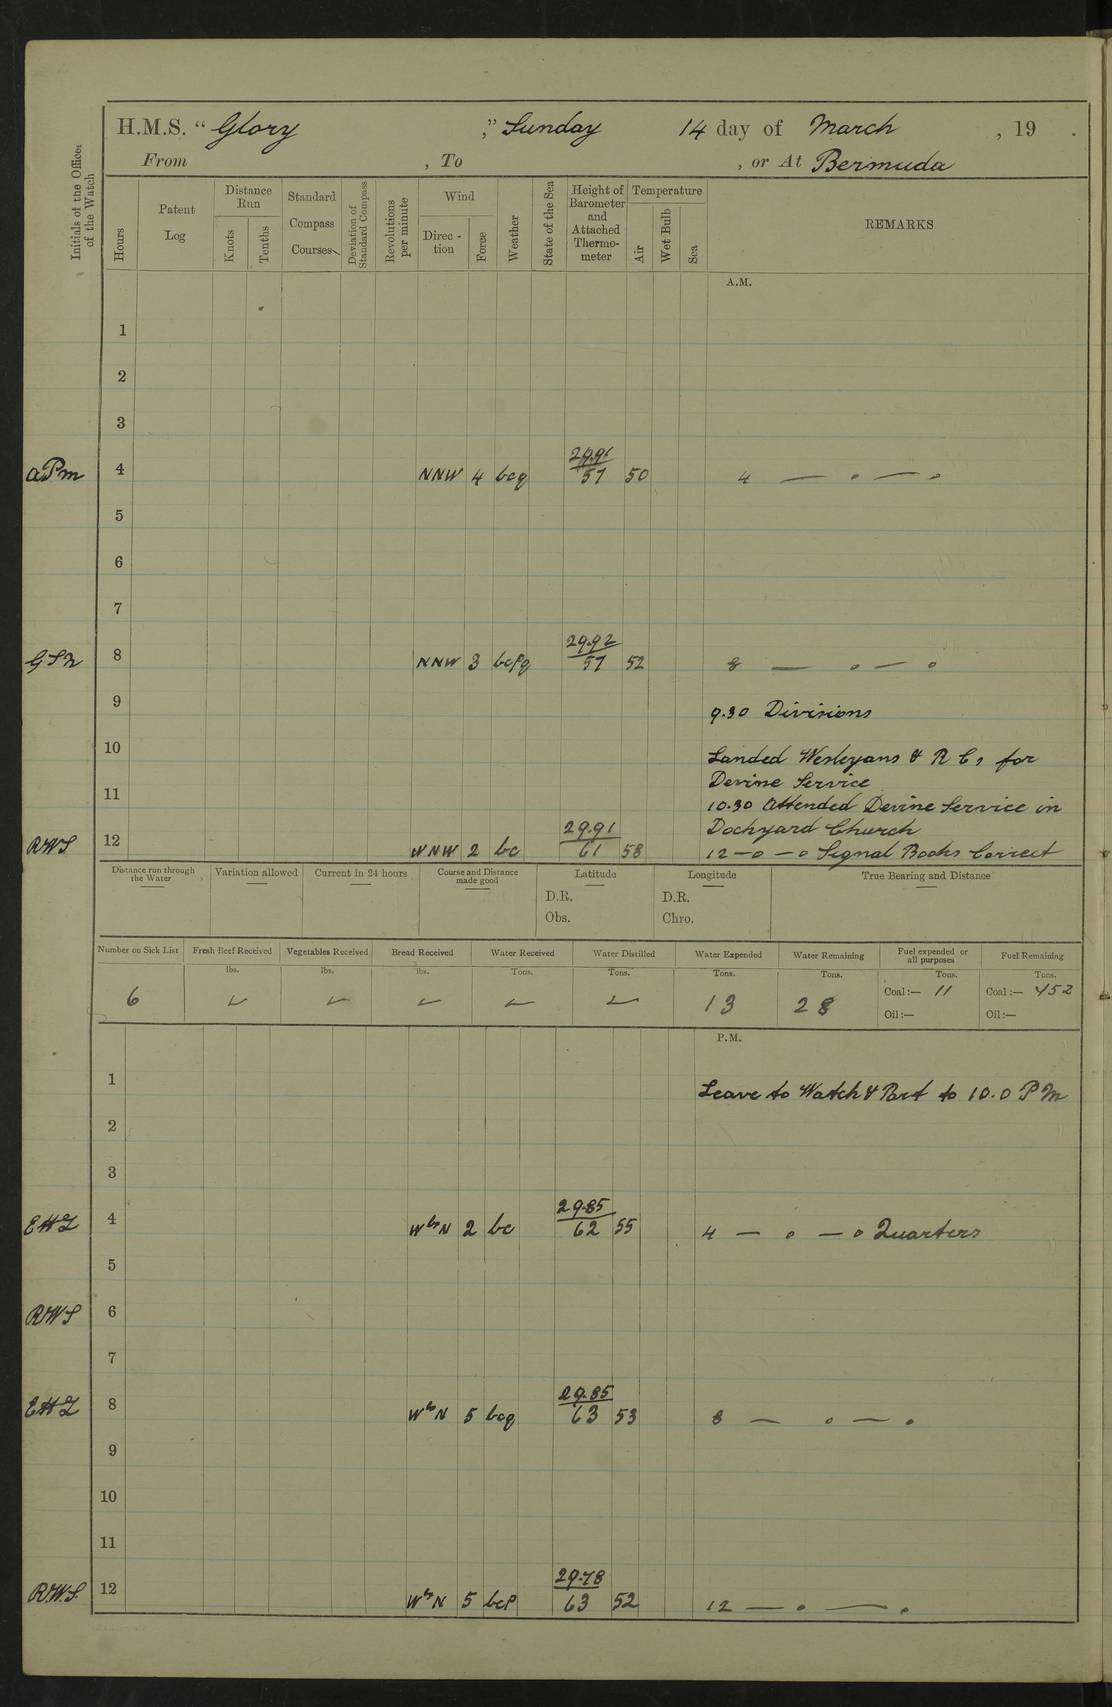 H.M.S. “ Glory ,” Sunday 14 day of March , 19 .
From , To , or At Bermuda
Initials of the Officer of the Watch
Hours
Patent Log
Distance Run
Knots
Tenths
Standard Compass Courses
Deviation of Standard Compass
Revolutions per minute
Wind
Direc-tion
Force
Weather
State of the Sea
Height of Barometer and Attached Thermo-meter
Temperature
Air
Wet Bulb
Sea
REMARKS
A.M.
1
2
3
29.91
APM 4 NNW 4 bcq 57 50 4 — o — o
5
6
7
29.92
8 NNW 3 bcpq 57 52 8 — o — o
9 9.30 Divisions
10 Landed Wesleyans & R Cs for
Devine Service
11 10.30 Attended Devine Service in
29.91 Dockyard Church
RWS 12 WNW 2 bc 61 58 12 — o — o Signal Books Correct
Distance run through the Water
Variation allowed
Current in 24 hours
Course and Distance made good
Latitude
D.R.
Obs.
Longitude
D.R.
Chro.
True Bearing and Distance
Number on Sick List Fresh Beef Received Vegetables Received Bread Received Water Received Water Distilled Water Expended Water Remaining Fuel expended or all purposes Fuel Remaining
lbs. lbs. lbs. Tons. Tons. Tons. Tons. Tons. Tons.
6 ✓ ✓ ✓ ✓ ✓ 13 28 Coal :— 11 Coal :— 452
Oil :— Oil :—
P.M.
1 Leave to Watch & Part to 10.0 PM
2
3
29.85
4 WbN 2 bc 62 55 4 — o — o Quarters
5
RWS 6
7
29.85
8 WbN 5 bcq 63 53 8 — o — o
9
10
11
29.78
R.W.S. 12 WbN 5 bcp 63 52 12 — o — o